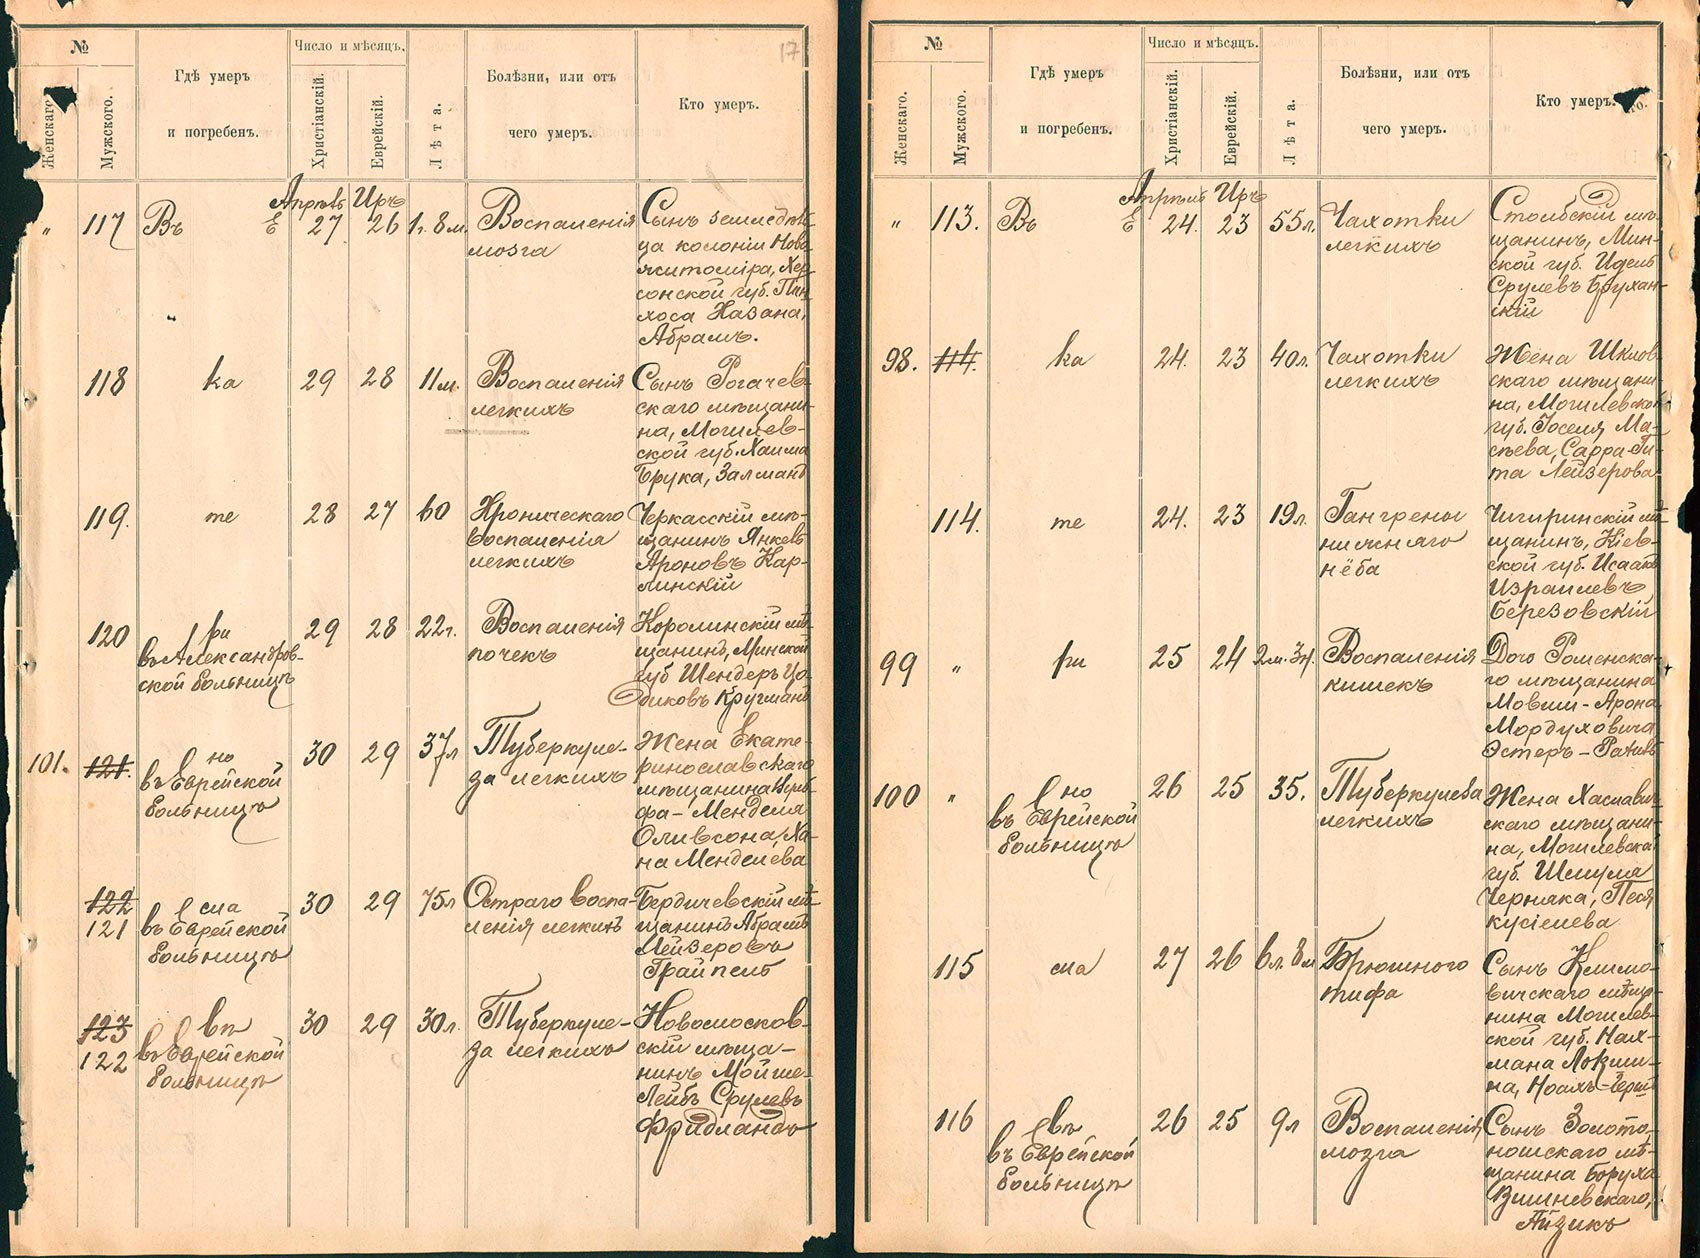 17
№
Женскаго.
Мужского.
Гдѣ умеръ
и погребенъ.
Число и мѣсяцъ.
Христіанскій.
Еврейскій.
Лѣта.
Болѣзни, или отъ
чего умеръ.
Кто умеръ.
Апрѣль Иръ
" 117 Въ Е 27. 26 1г. 8м. Воспаленія
мозга
Сынъ земледѣль
ца колоніи Ново
житоміра, Хер
сонской губ. Пин
хоса Казана,
Абрамъ.
118 ка 29 28 11м. Воспаленія
легкихъ
Сынъ Рогачев
скаго мѣщани-
на, Могилев-
ской губ. Хаима
Брука, Залманъ
119. те 28 27 60 Хроническаго
воспаленія
легкихъ
Черкасскій мѣ-
щанинъ Янкель
Ароновъ Кар-
линскій
120 ри
въ Александров-
ской больницѣ
29 28 22г. Воспаленія
почекъ
Королинскій мѣ
щанинъ, Минской
губ Шендеръ Ца
диковъ Кругманъ
101. 121. но
въ Еврейской
больницѣ
30 29 37л Туберкуле-
за легкихъ
Жена Екате-
ринославскаго
мѣщанина Вуль
фа-Менделя
Оливсона, Ха-
на Менделева
122
121 сла
въ Еврейской
больницѣ
30 29 75л Остраго воспа-
ленія легкихъ
Бердичевскій мѣ
щанинъ Абрамъ
Лейзеровъ
Грайпель
123
122 въ
въ Еврейской
больницѣ
30 29 30л. Туберкуле-
за легкихъ
Новомосков-
скій мѣща-
нинъ Мойше-
Лейбъ Срулевъ
Фридландъ
№
Женскаго.
Мужского.
Гдѣ умеръ
и погребенъ.
Число и мѣсяцъ.
Христіанскій.
Еврейскій.
Лѣта.
Болѣзни, или отъ
чего умеръ.
Кто умеръ.
Апрѣль Иръ
" 113. Въ Е 24. 23 55л. Чахотки
легкихъ
Столбскій мѣ-
щанинъ, Мин-
ской губ. Идель
Срулевъ Брухан-
скій
98. 114. ка 24. 23 40л. Чахотки
легкихъ
Жена Шклов
скаго мѣщани-
на, Могилевской
губ. Іоселя Ма-
сѣева, Сарра-Ги-
та Лейзерова
114. те 24. 23 19л. Гангрены
нижняго
нёба
Чигиринскій мѣ
щанинъ, Кіев-
ской губ. Исаакъ
Израилевъ
Березовскій
99 " ри 25 24 2м. 3н. Воспаленія
кишекъ
Дочь Роменска-
го мѣщанина
Мовши-Арона
Мордуховича
Эстеръ-Рахиль
100 " но
въ Еврейской
больницѣ
26 25 35. Туберкулеза
легкихъ
Жена Хаславич
скаго мѣщани-
на, Могилевской
губ. Шмуила
Черняка, Песя
Кусіелева
115 сла 27 26 6л. 8м Брюшного
тифа
Сынъ Климо-
вичскаго мѣща-
нина Могилев-
ской губ. Нах-
мана Локши-
на, Ноахъ-Берш
116 въ
въ Еврейской
больницѣ
26 25 9л Воспаленія
мозга
Сынъ Золото-
ношскаго мѣ-
щанина Боруха
Вишневскаго,
Айзикъ